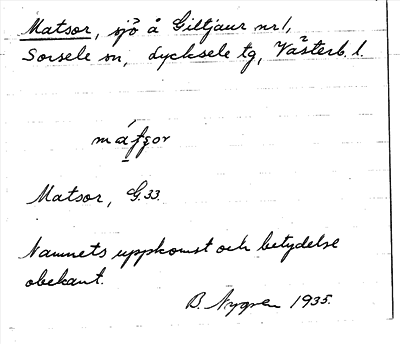 Matsor, sjö å Giltjaur nr 1,
Sorsele sn, Lycksele tg, Västerb. l.
Matsor, G.33.
Namnets uppkomst och betydelse
obekant.
B. Nygren 1935.